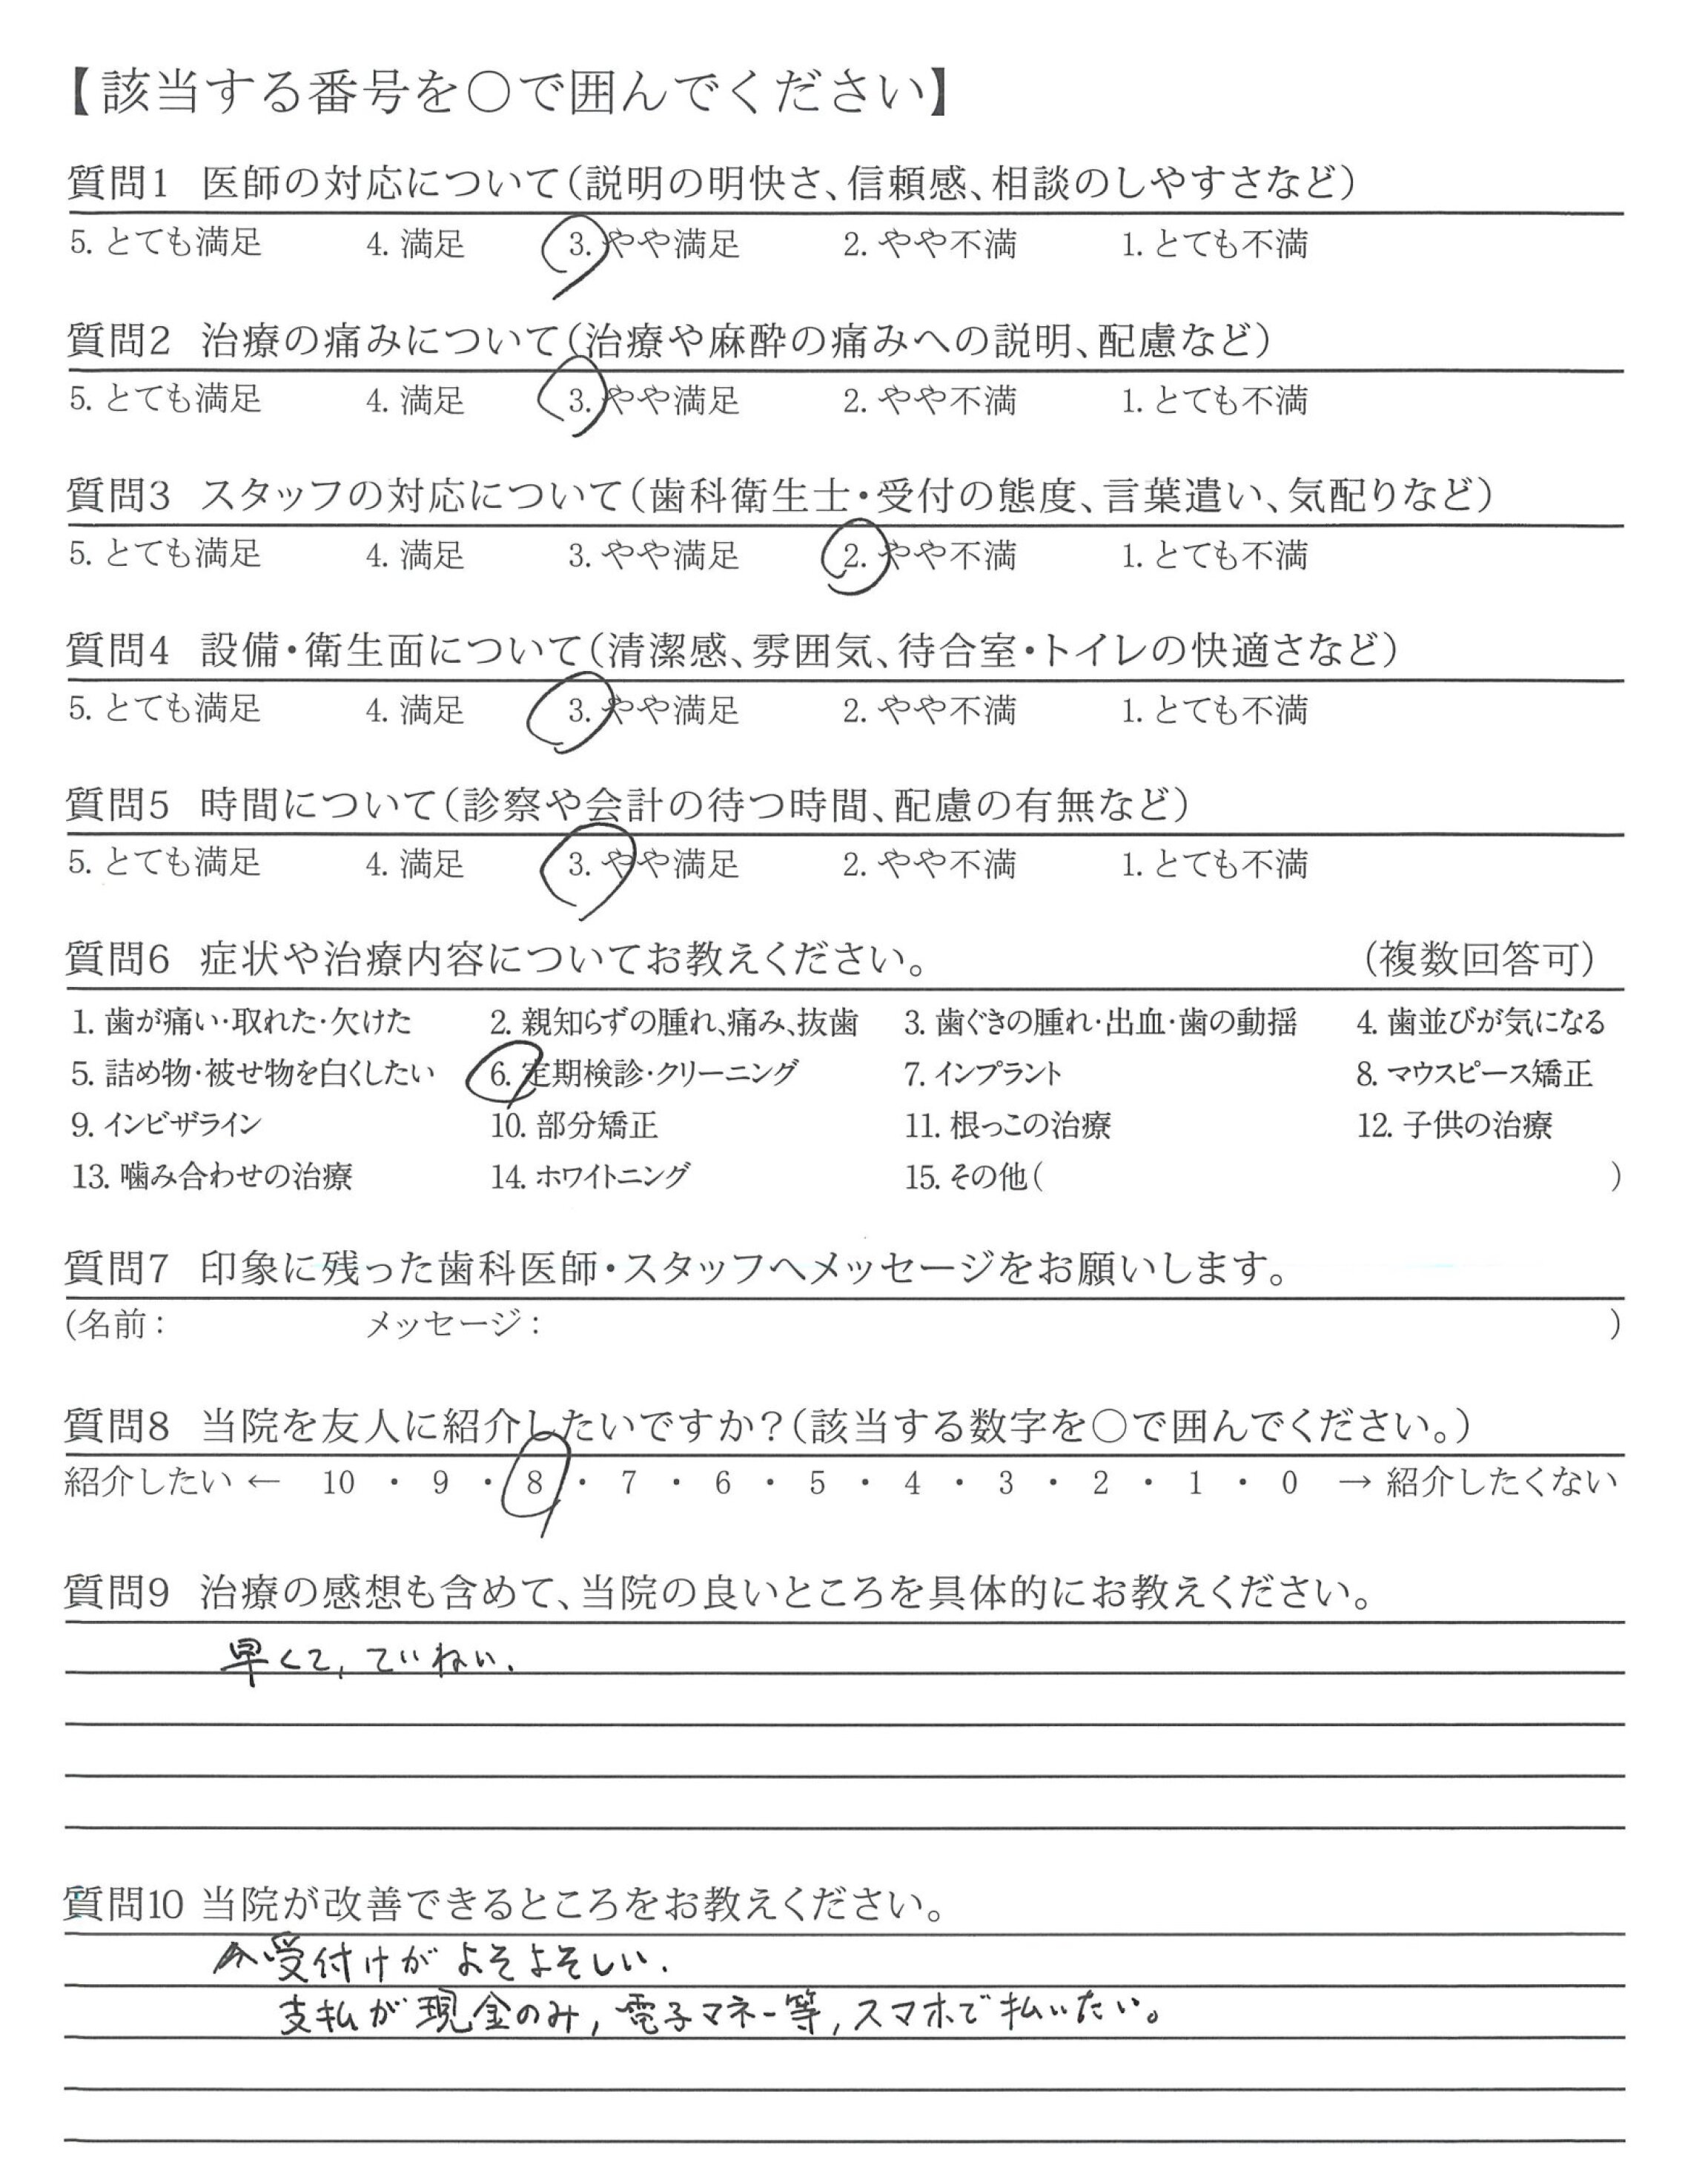 【該当する番号を○で囲んでください】
質問1 医師の対応について(説明の明快さ、信頼感、相談のしやすさなど)
5. とても満足 4. 満足 3. やや満足 2. やや不満 1. とても不満
質問2 治療の痛みについて(治療や麻酔の痛みへの説明、配慮など)
5. とても満足 4. 満足 3. やや満足 2. やや不満 1. とても不満
質問3 スタッフの対応について(歯科衛生士・受付の態度、言葉遣い、気配りなど)
5. とても満足 4. 満足 3. やや満足 2. やや不満 1. とても不満
質問4 設備・衛生面について(清潔感、雰囲気、待合室・トイレの快適さなど)
5. とても満足 4. 満足 3. やや満足 2. やや不満 1. とても不満
質問5 時間について(診察や会計の待つ時間、配慮の有無など)
5. とても満足 4. 満足 3. やや満足 2. やや不満 1. とても不満
質問6 症状や治療内容についてお教えください。 (複数回答可)
1. 歯が痛い・取れた・欠けた 2. 親知らずの腫れ、痛み、抜歯 3. 歯ぐきの腫れ・出血・歯の動揺 4. 歯並びが気になる
5. 詰め物・被せ物を白くしたい 6. 定期検診・クリーニング 7. インプラント 8. マウスピース矯正
9. インビザライン 10. 部分矯正 11. 根っこの治療 12. 子供の治療
13. 噛み合わせの治療 14. ホワイトニング 15. その他( )
質問7 印象に残った歯科医師・スタッフへメッセージをお願いします。
(名前: メッセージ: )
質問8 当院を友人に紹介したいですか?(該当する数字を○で囲んでください。)
紹介したい ← 10 ・ 9 ・ 8 ・ 7 ・ 6 ・ 5 ・ 4 ・ 3 ・ 2 ・ 1 ・ 0 → 紹介したくない
質問9 治療の感想も含めて、当院の良いところを具体的にお教えください。
早くて, ていねい.
質問10 当院が改善できるところをお教えください。
受付けが よそよそしい.
支払が 現金のみ, 電子マネー等, スマホで 払いたい。